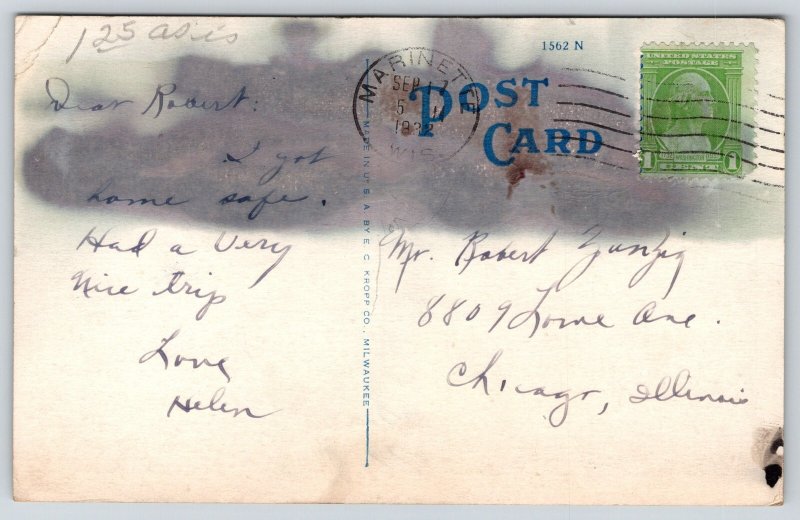 1 25 as is
1562 N
POST
CARD
MARINETTE
SEP 17
5
1932
WIS
UNITED STATES
POSTAGE
WASHINGTON
1 CENT 1
Dear Robert:
I got
home safe.
Had a Very
Nice trip
Love
Helen
MADE IN U.S.A. BY E. C. KROPP CO., MILWAUKEE
Mr. Robert
8809 Lowe Ave.
Chicago, Illinois